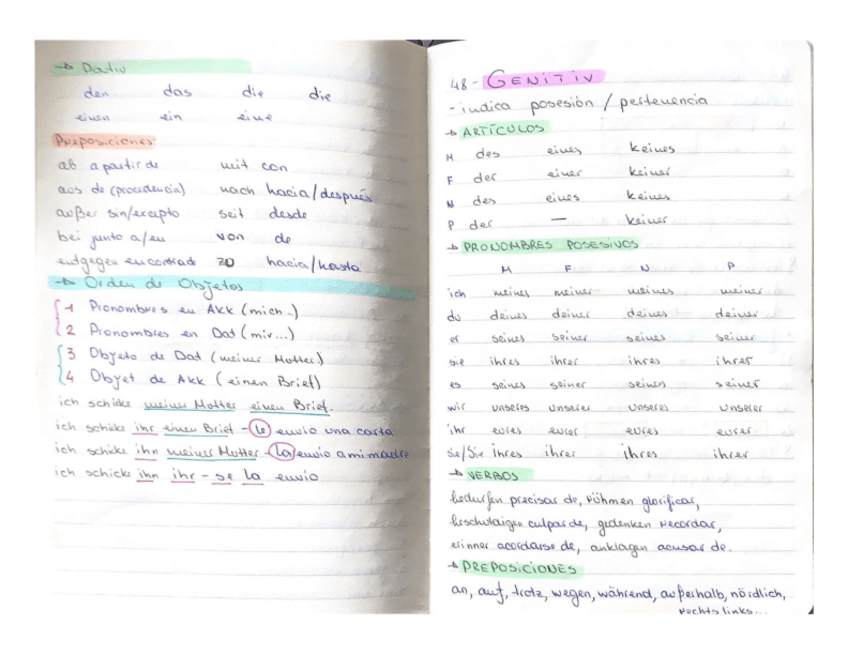 → Dativ
den das die die
einen ein eine
Preposiciones:
ab a partir de mit con
aus de (procedencia) nach hacia/después
außer sin/excepto seit desde
bei junto a/en von de
entgegen encontrado zu hacia/hasta
→ Orden de Objetos
1 Pronombres en Akk (mich..)
2 Pronombres en Dat (mir...)
3 Objeto de Dat (meiner Motter)
4 Objet de Akk (einen Brief)
ich schicke meiner Motter einen Brief.
ich schicke ihr einen Brief - le envio una carta
ich schicke ihn meiner Motter - la envio a mi madre
ich schicke ihn ihr - se la envio
48- GENITIV
- indica posesión / pertenencia
→ ARTÍCULOS
M des eines keines
F der einer keiner
N des eines keines
P der — keiner
→ PRONOMBRES POSESIVOS
M F N P
ich meines meiner meines meiner
du deines deiner deines deiner
er seines seiner seines seiner
sie ihres ihrer ihres ihrer
es seines seiner seines seiner
wir unseres unserer unseres unserer
ihr eures eurer eures eurer
sie/Sie ihres ihrer ihres ihrer
→ VERBOS
bedurfen precisar de, rühmen glorificar,
beschuldigen culpar de, gedenken recordar,
erinner acordarse de, anklagen acusar de.
→ PREPOSICIONES
an, auf, trotz, wegen, während, außerhalb, nördlich,
rechts, links...